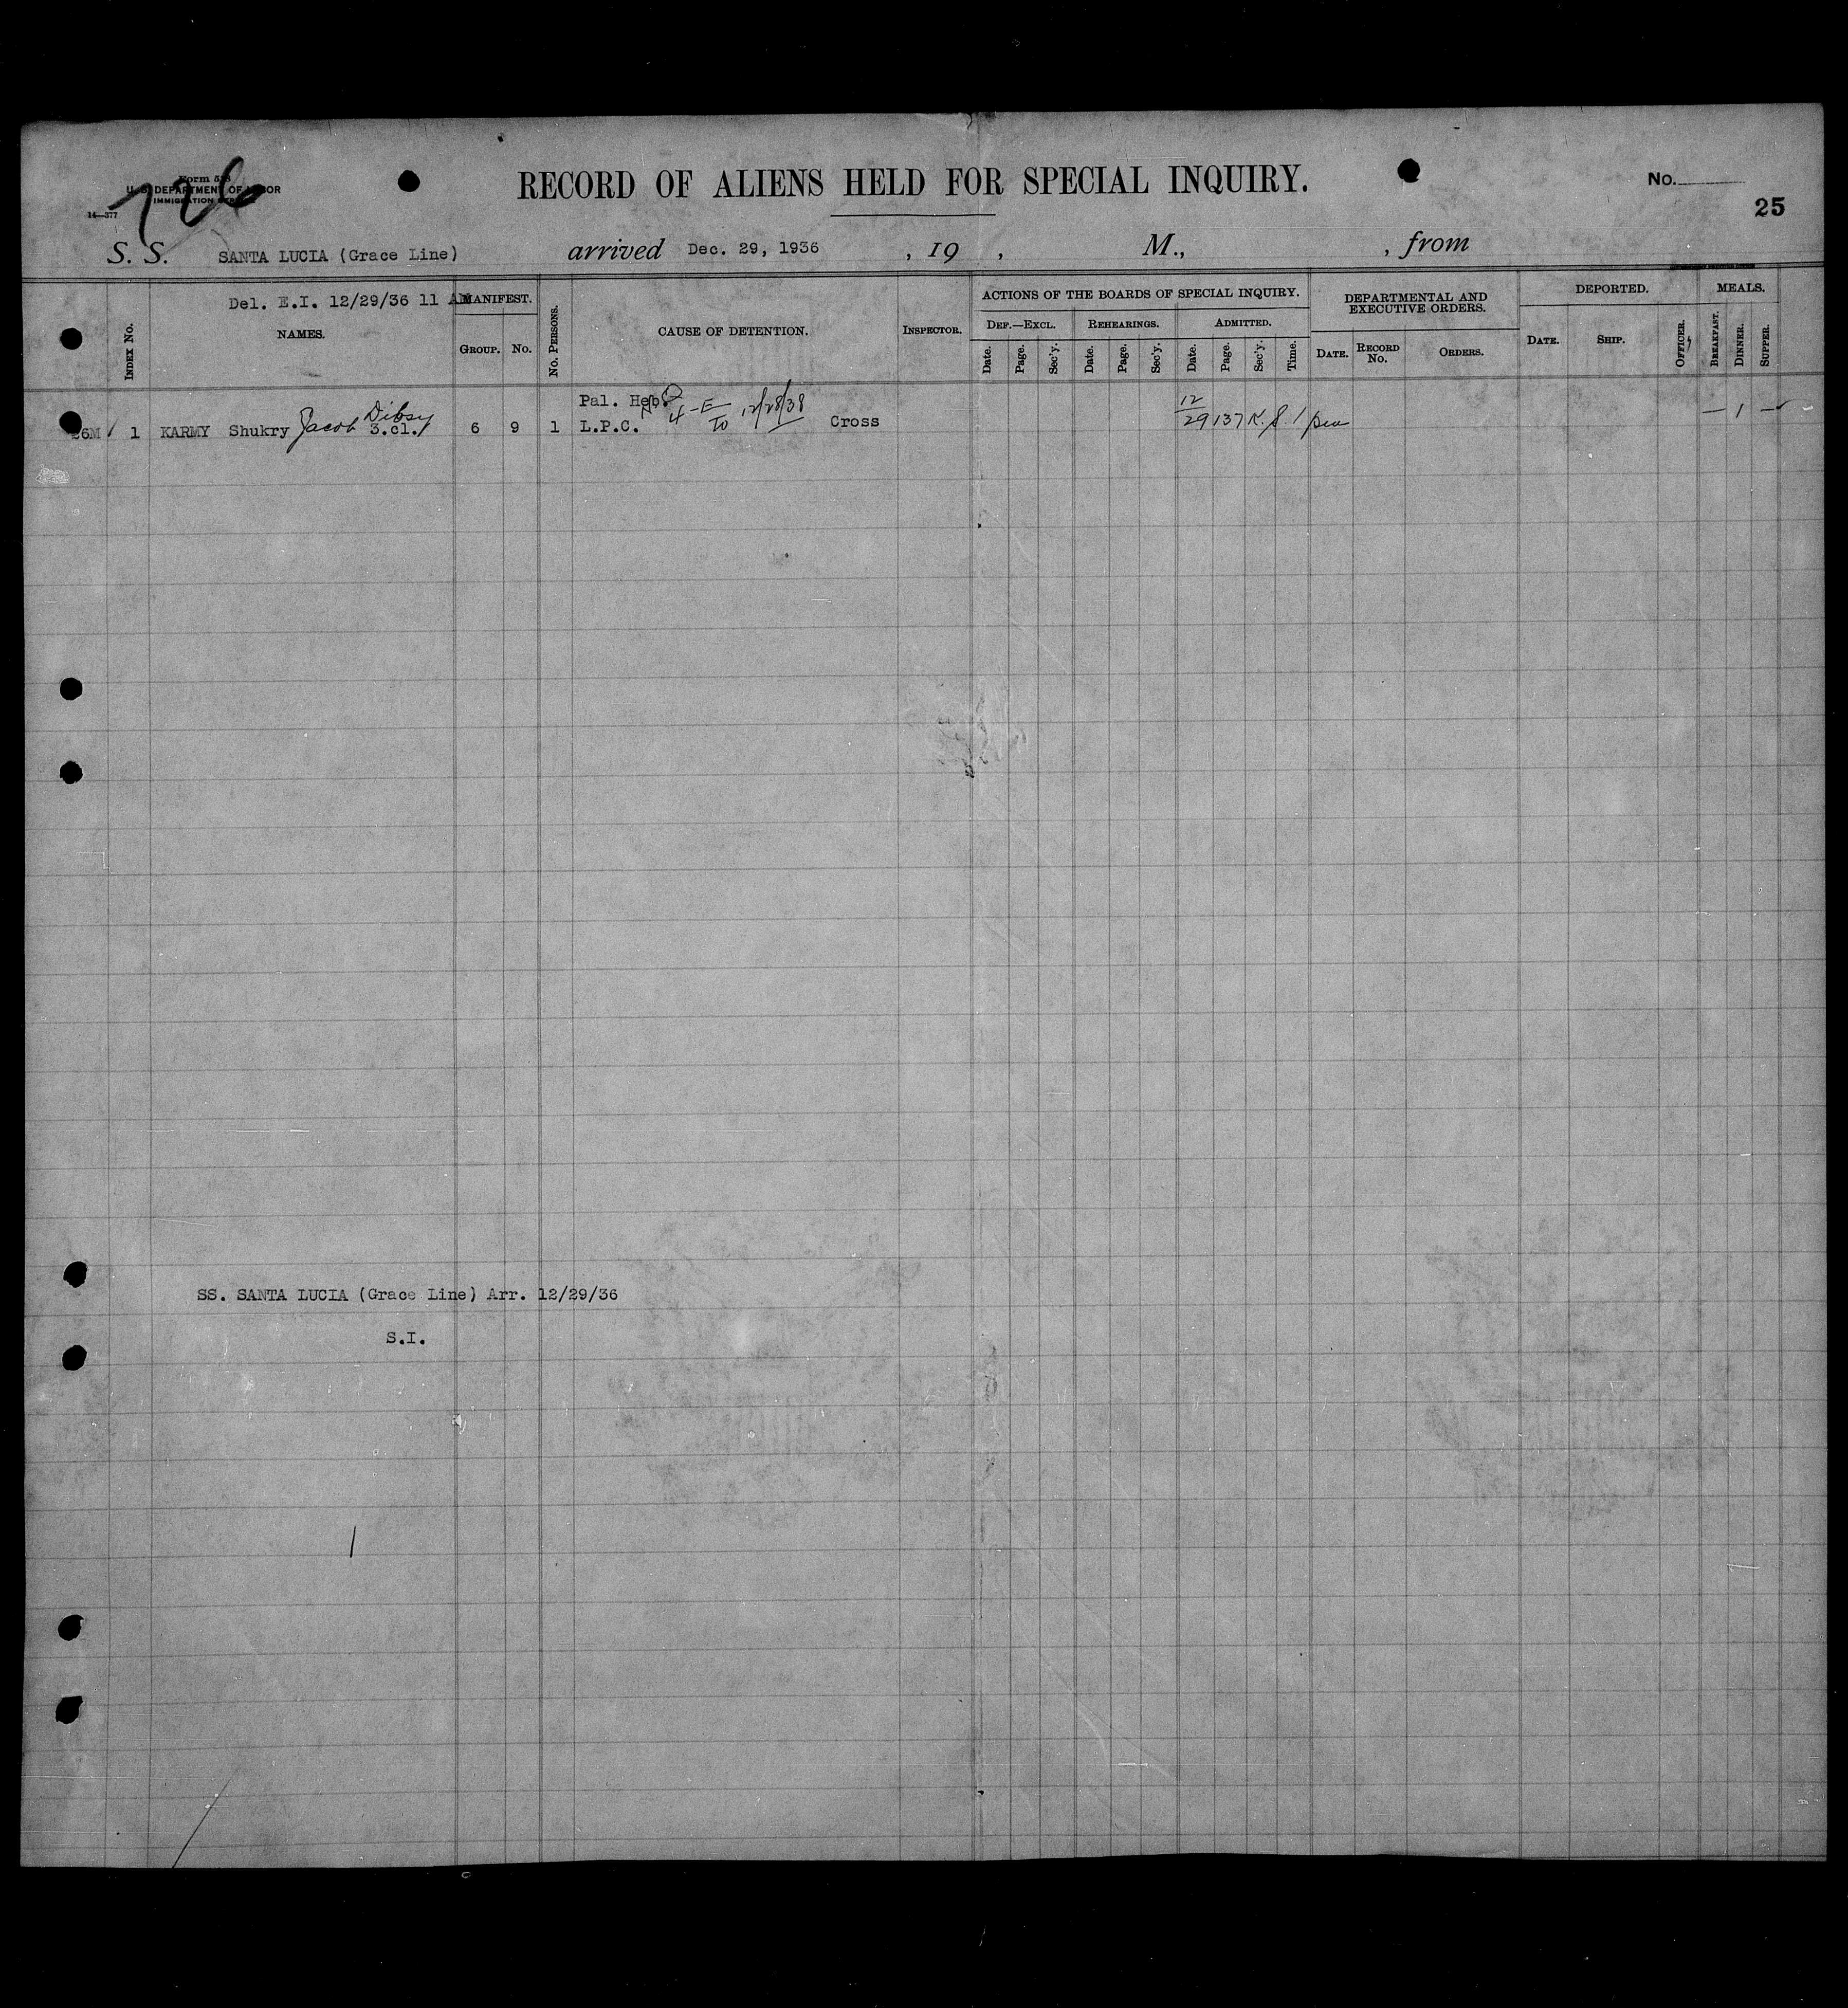 726
Form 518
U. S. DEPARTMENT OF LABOR
IMMIGRATION
14—377
RECORD OF ALIENS HELD FOR SPECIAL INQUIRY.
No.
25
S. S. SANTA LUCIA (Grace Line) arrived Dec. 29, 1936 , 19 , M., , from
Del. E.I. 12/29/36 11 AM
INDEX No. NAMES. MANIFEST. GROUP. No. No. PERSONS. CAUSE OF DETENTION. INSPECTOR.
ACTIONS OF THE BOARDS OF SPECIAL INQUIRY.
DEF.—EXCL. REHEARINGS. ADMITTED.
Date. Page. Sec'y. Date. Page. Sec'y. Date. Page. Sec'y. Time.
DEPARTMENTAL AND EXECUTIVE ORDERS.
DATE. RECORD No. ORDERS.
DEPORTED.
DATE. SHIP. OFFICER.
MEALS.
BREAKFAST. DINNER. SUPPER.
Pal. Heb.
26M 1 KARMY Shukry Jacob Dibsy 3.cl. 6 9 1 L.P.C. 4-E to 12/28/38 Cross 12/29 137 K. S. 1 — 1 —
SS. SANTA LUCIA (Grace Line) Arr. 12/29/36
S.I.